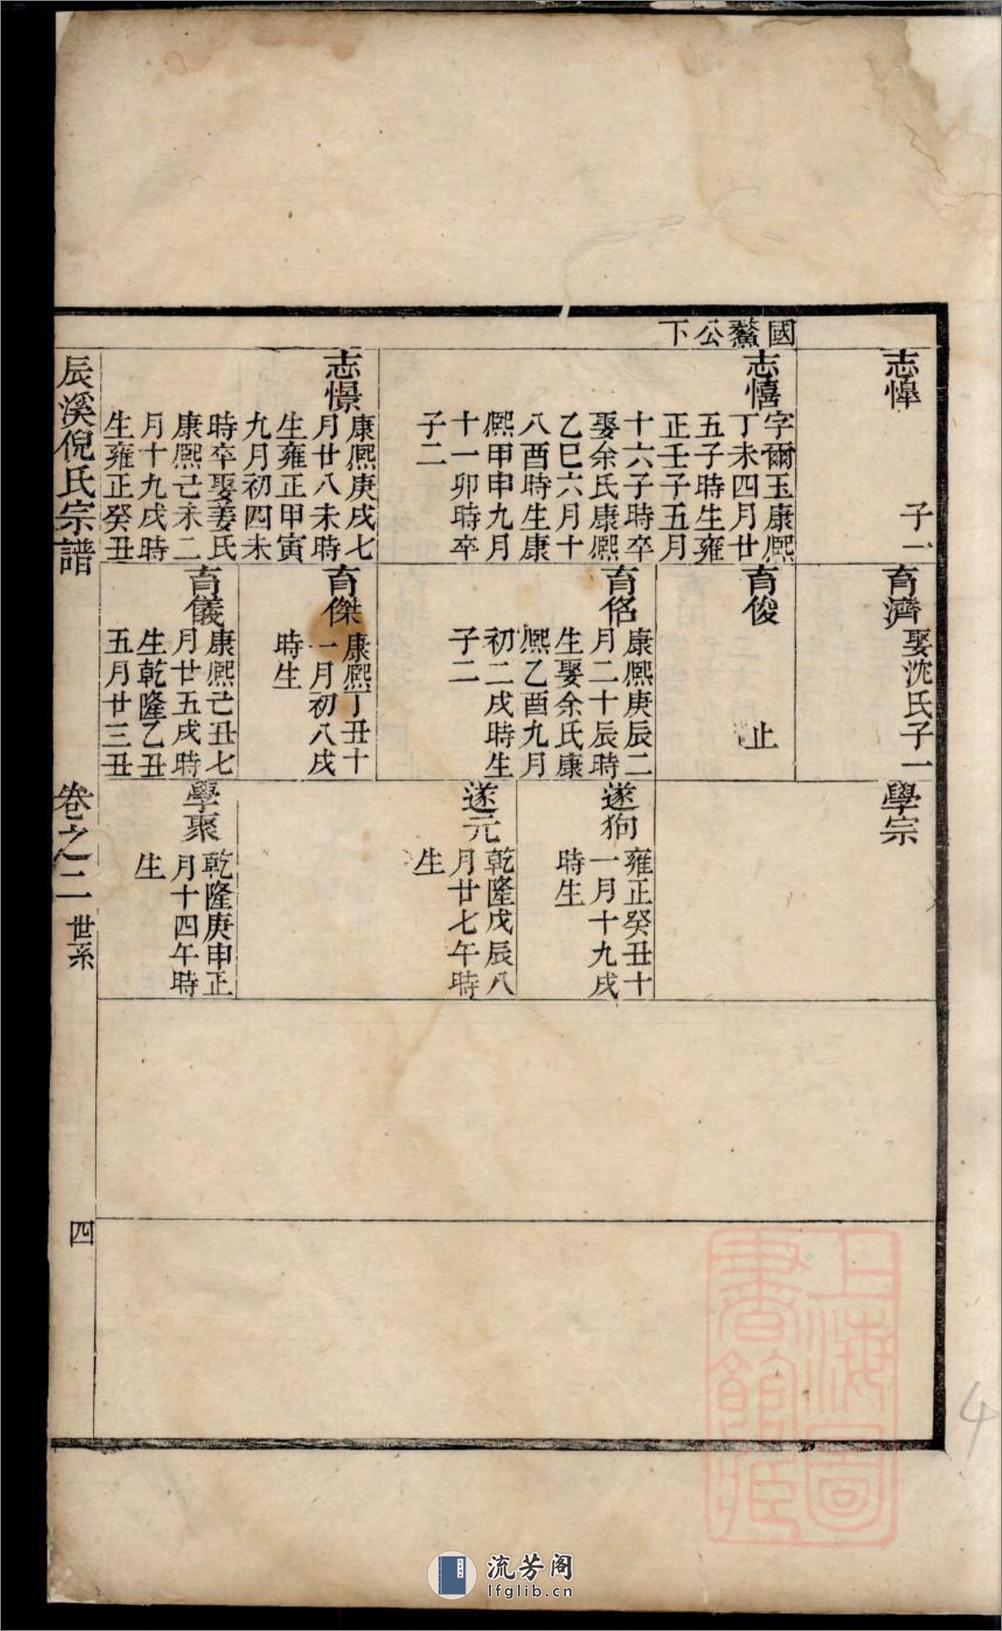 國鰲公下
志憚
子一
志禧
字爾玉康熙
丁未四月廿
五子時生雍
正壬子五月
十六子時卒
娶余氏康熙
乙巳六月十
八酉時生康
熙甲申九月
十一卯時卒
子二
志憬
康熙庚戌七
月廿八未時
生雍正甲寅
九月初四未
時卒娶姜氏
康熙己未二
月十九戌時
生雍正癸丑
育濟
娶沈氏子一
育俊
止
育佲
康熙庚辰二
月二十辰時
生娶余氏康
熙乙酉九月
初二戌時生
子二
育傑
康熙丁丑十
一月初八戌
時生
育儀
康熙己丑七
月廿五戌時
生乾隆乙丑
五月廿三丑
學宗
遂狗
雍正癸丑十
一月十九戌
時生
遂元
乾隆戊辰八
月廿七午時
生
學聚
乾隆庚申正
月十四午時
生
辰溪倪氏宗譜
卷之二
世系
四
上海圖
書館藏
4
流芳阁
lfglib.cn